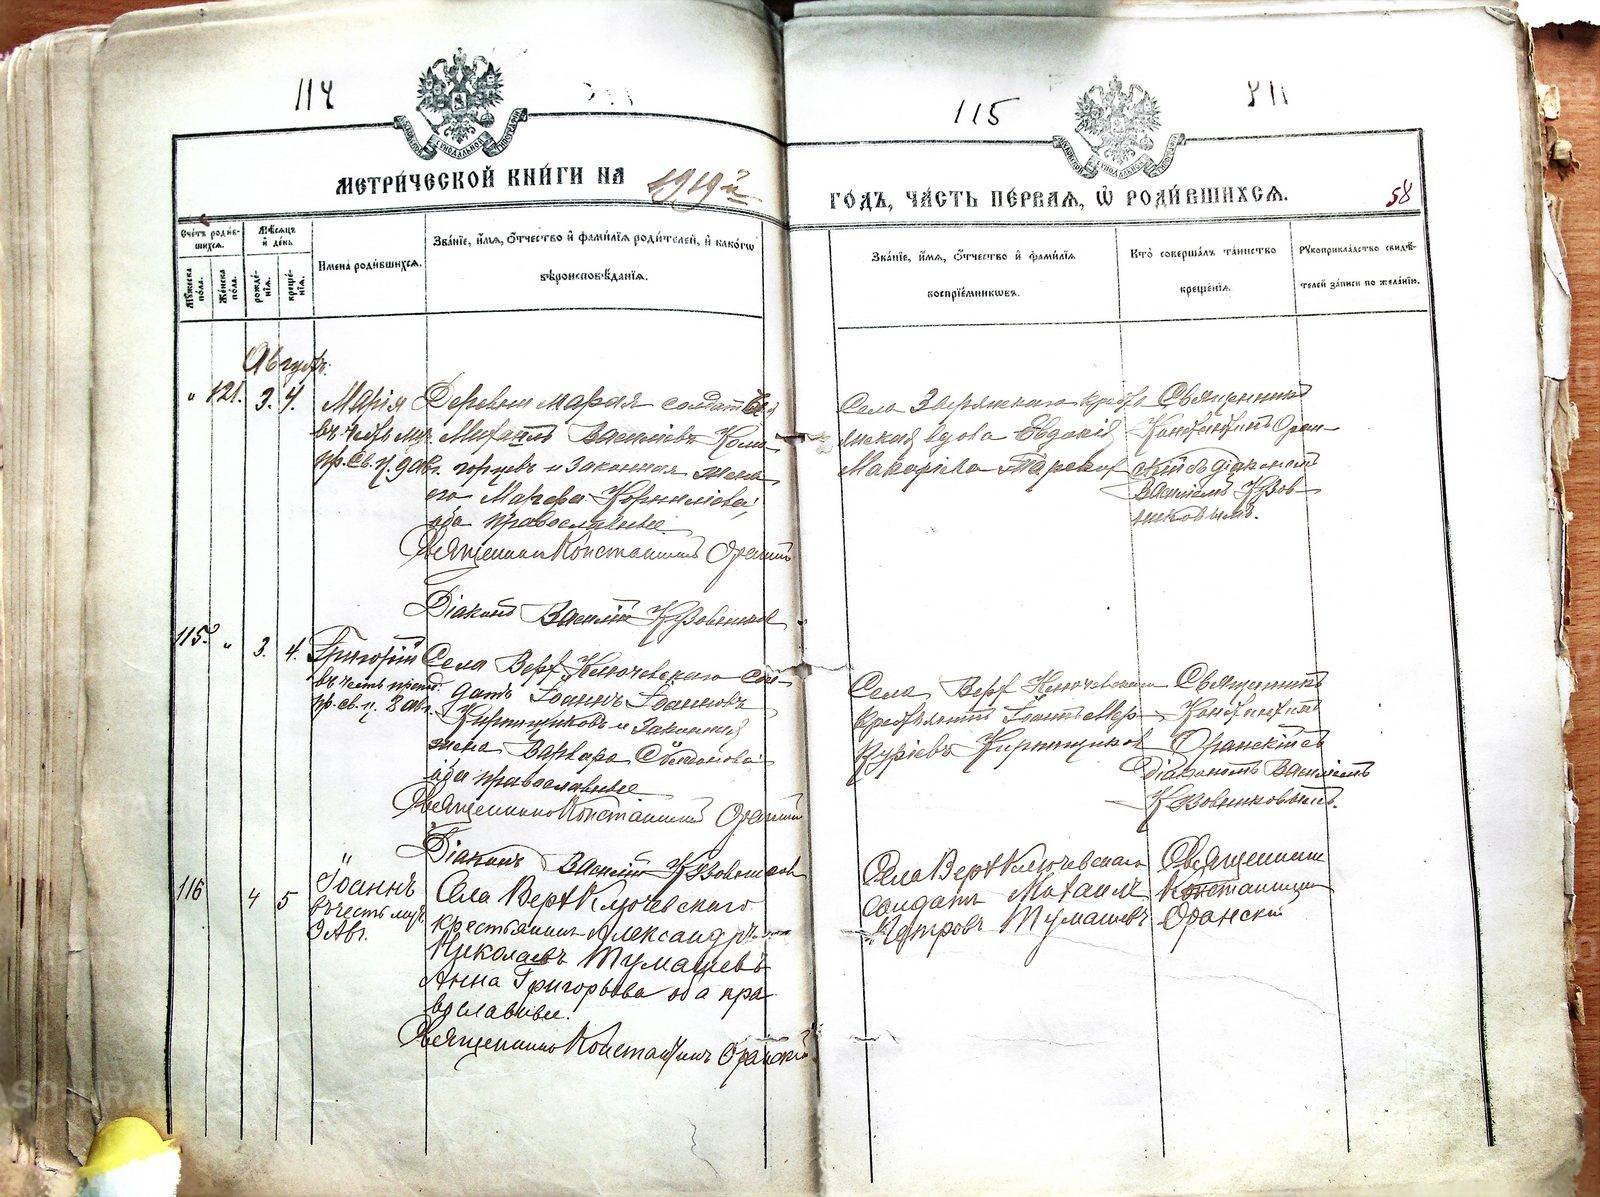 114
115
МЕТРИ́ЧЕСКОЙ КНИ́ГИ НА 1919й
ГО́ДЪ, ЧА́СТЬ ПЕ́РВАѦ, Ѡ҆ РОДИ́ВШИХСѦ.
58
Сче́тъ роди́в-
шихся.
Мꙋ́жеска по́ла.
Же́нска по́ла.
Мѣ́сяцъ и҆ де́нь
рожде́-
нїѧ.
креще́-
нїѧ.
Имена роди́вшихсѧ.
Зва́нїе, и҆́мѧ, ѻ҆́тчество и҆ фами́лїѧ роди́телей, и҆ како́гѡ
вѣроисповѣ́данїѧ.
Зва́нїе, и҆́мѧ, ѻ҆́тчество и҆ фами́лїѧ
воспрїе́мникѡвъ.
Кто̀ соверша́лъ та́инство
креще́нїѧ.
Рꙋкоприкла́дство свидѣ́-
телей за́писи по жела́нїю.
Августъ.
" 121. 3. 4.
Марія
въ честь му.
Деревни Марая солдатъ
Михаилъ Васильевъ Кома
горцевъ и законная жена
его Марфа Корнилова,
оба православные
Священникъ Константинъ Оранскій
Діаконъ Василій Кузовников
Села Зверинскаго кресть
янская вдова Евдокія
Макарова
Священникъ
Константинъ Оран
скій съ діакономъ
Василіемъ Кузов
никовымъ.
115. " 3. 4.
Григорій
въ честь препод.
Села Верх Ключевского сол
датъ Іоаннъ Іоанновъ
Кирпищиковъ и законная
жена Варвара
оба православные
Священникъ Константинъ Оранскій
Діаконъ Василій Кузовников
Села Верх Ключевского
крестьянинъ Іоаннъ Мер
куріевъ Кирпищиков
Священникъ
Константинъ
Оранскій съ
діакономъ Василіемъ
Кузовниковымъ.
116 4 5
Іоаннъ
въ честь муч.
9 Авг.
Села Верх Ключевского
крестьянинъ Александръ
Николаевъ Тумашевъ
Анна Григорьева оба пра
вославные.
Священникъ Константинъ Оранскій
Села Верх Ключевскаго
солдатъ Михаилъ
Петровъ Тумашевъ
Священникъ
Константинъ
Оранскій